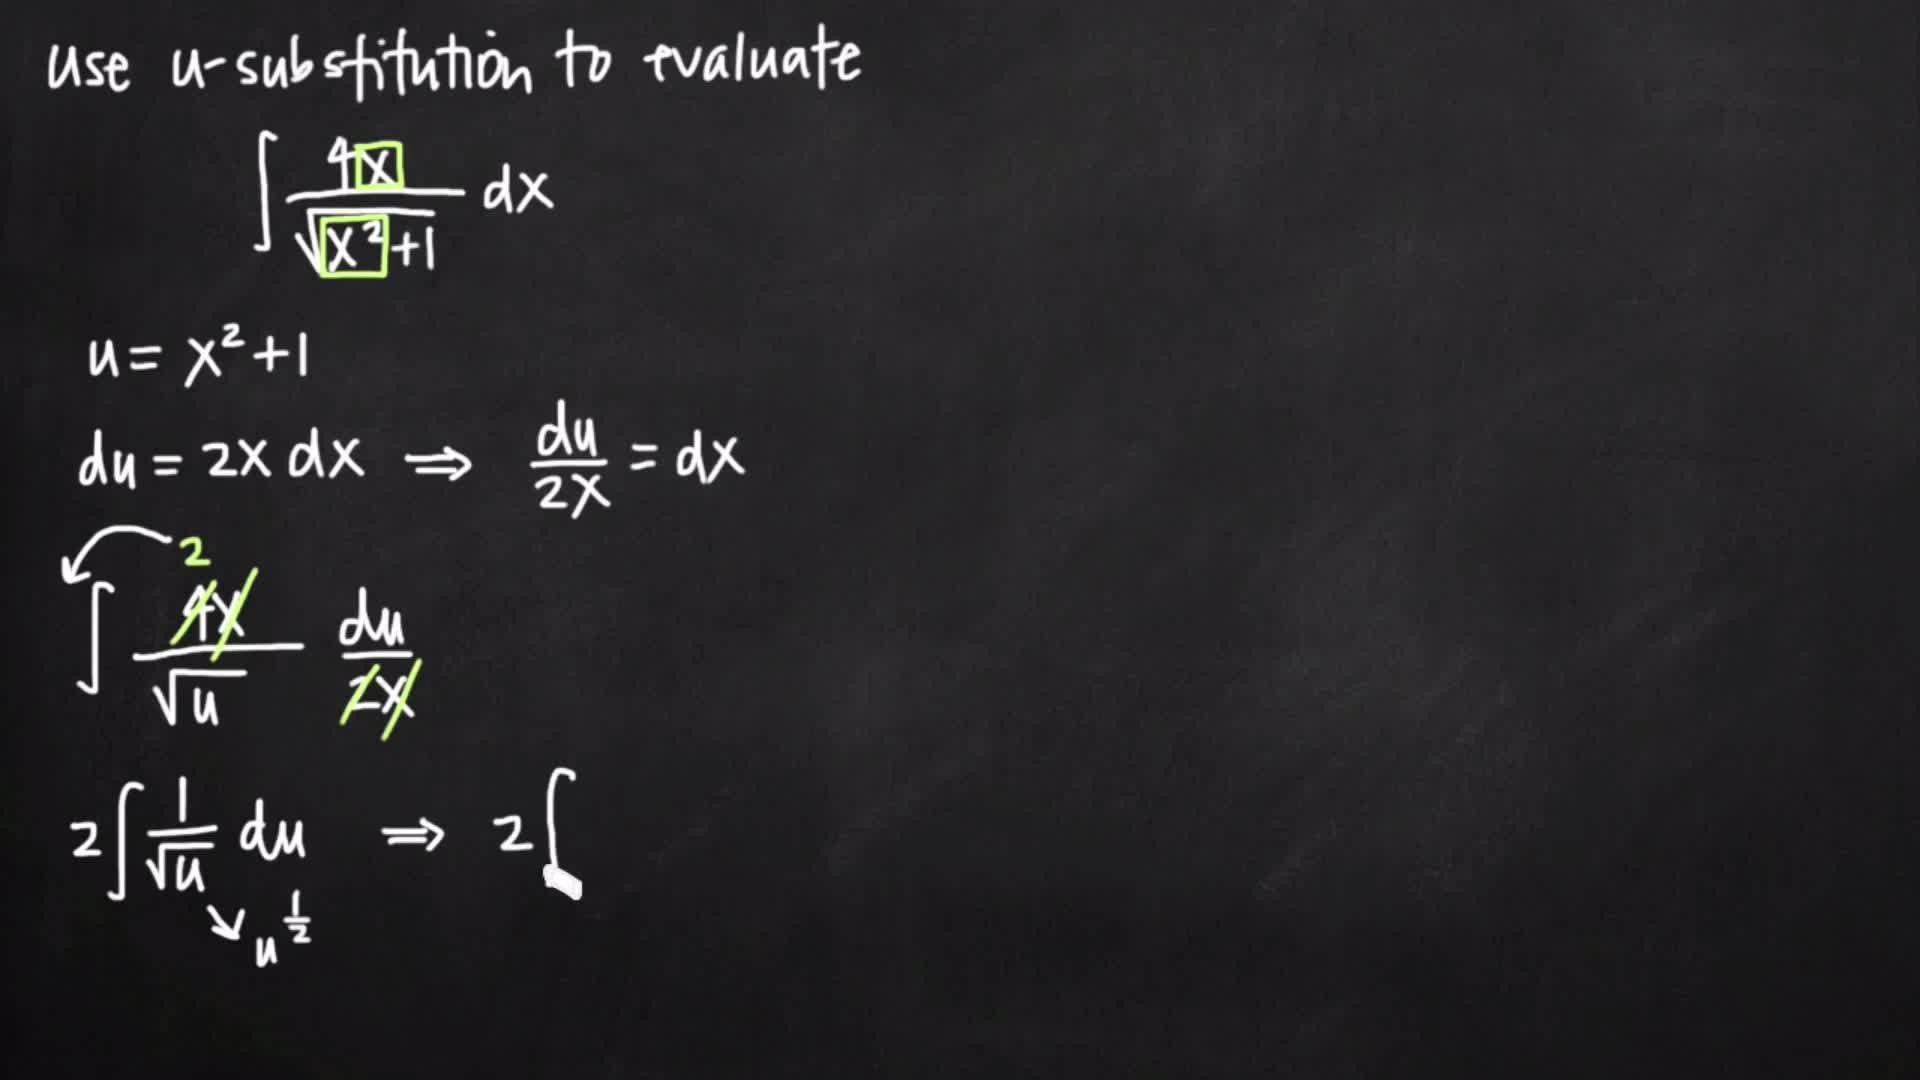 use u-substitution to evaluate
∫ 4x/√(x²+1) dx
u = x²+1
du = 2x dx ⇒ du/2x = dx
2
∫ 4x/√u du/2x
2∫ 1/√u du ⇒ 2∫
↘ u^(1/2)